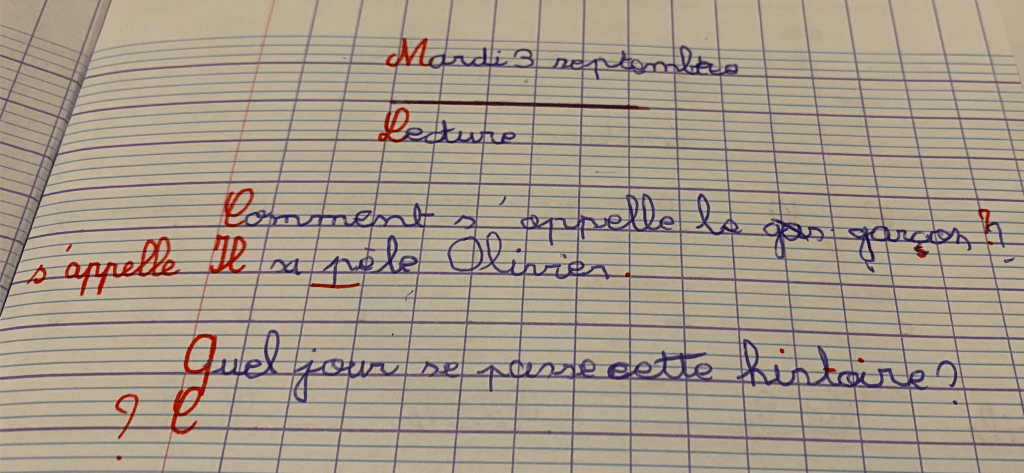 Mardi 3 septembre
Lecture
Comment s'appelle le gas garços ?
s'appelle Il sa pèle Olivier.
Quel jour se passe cette histoire ?
? C